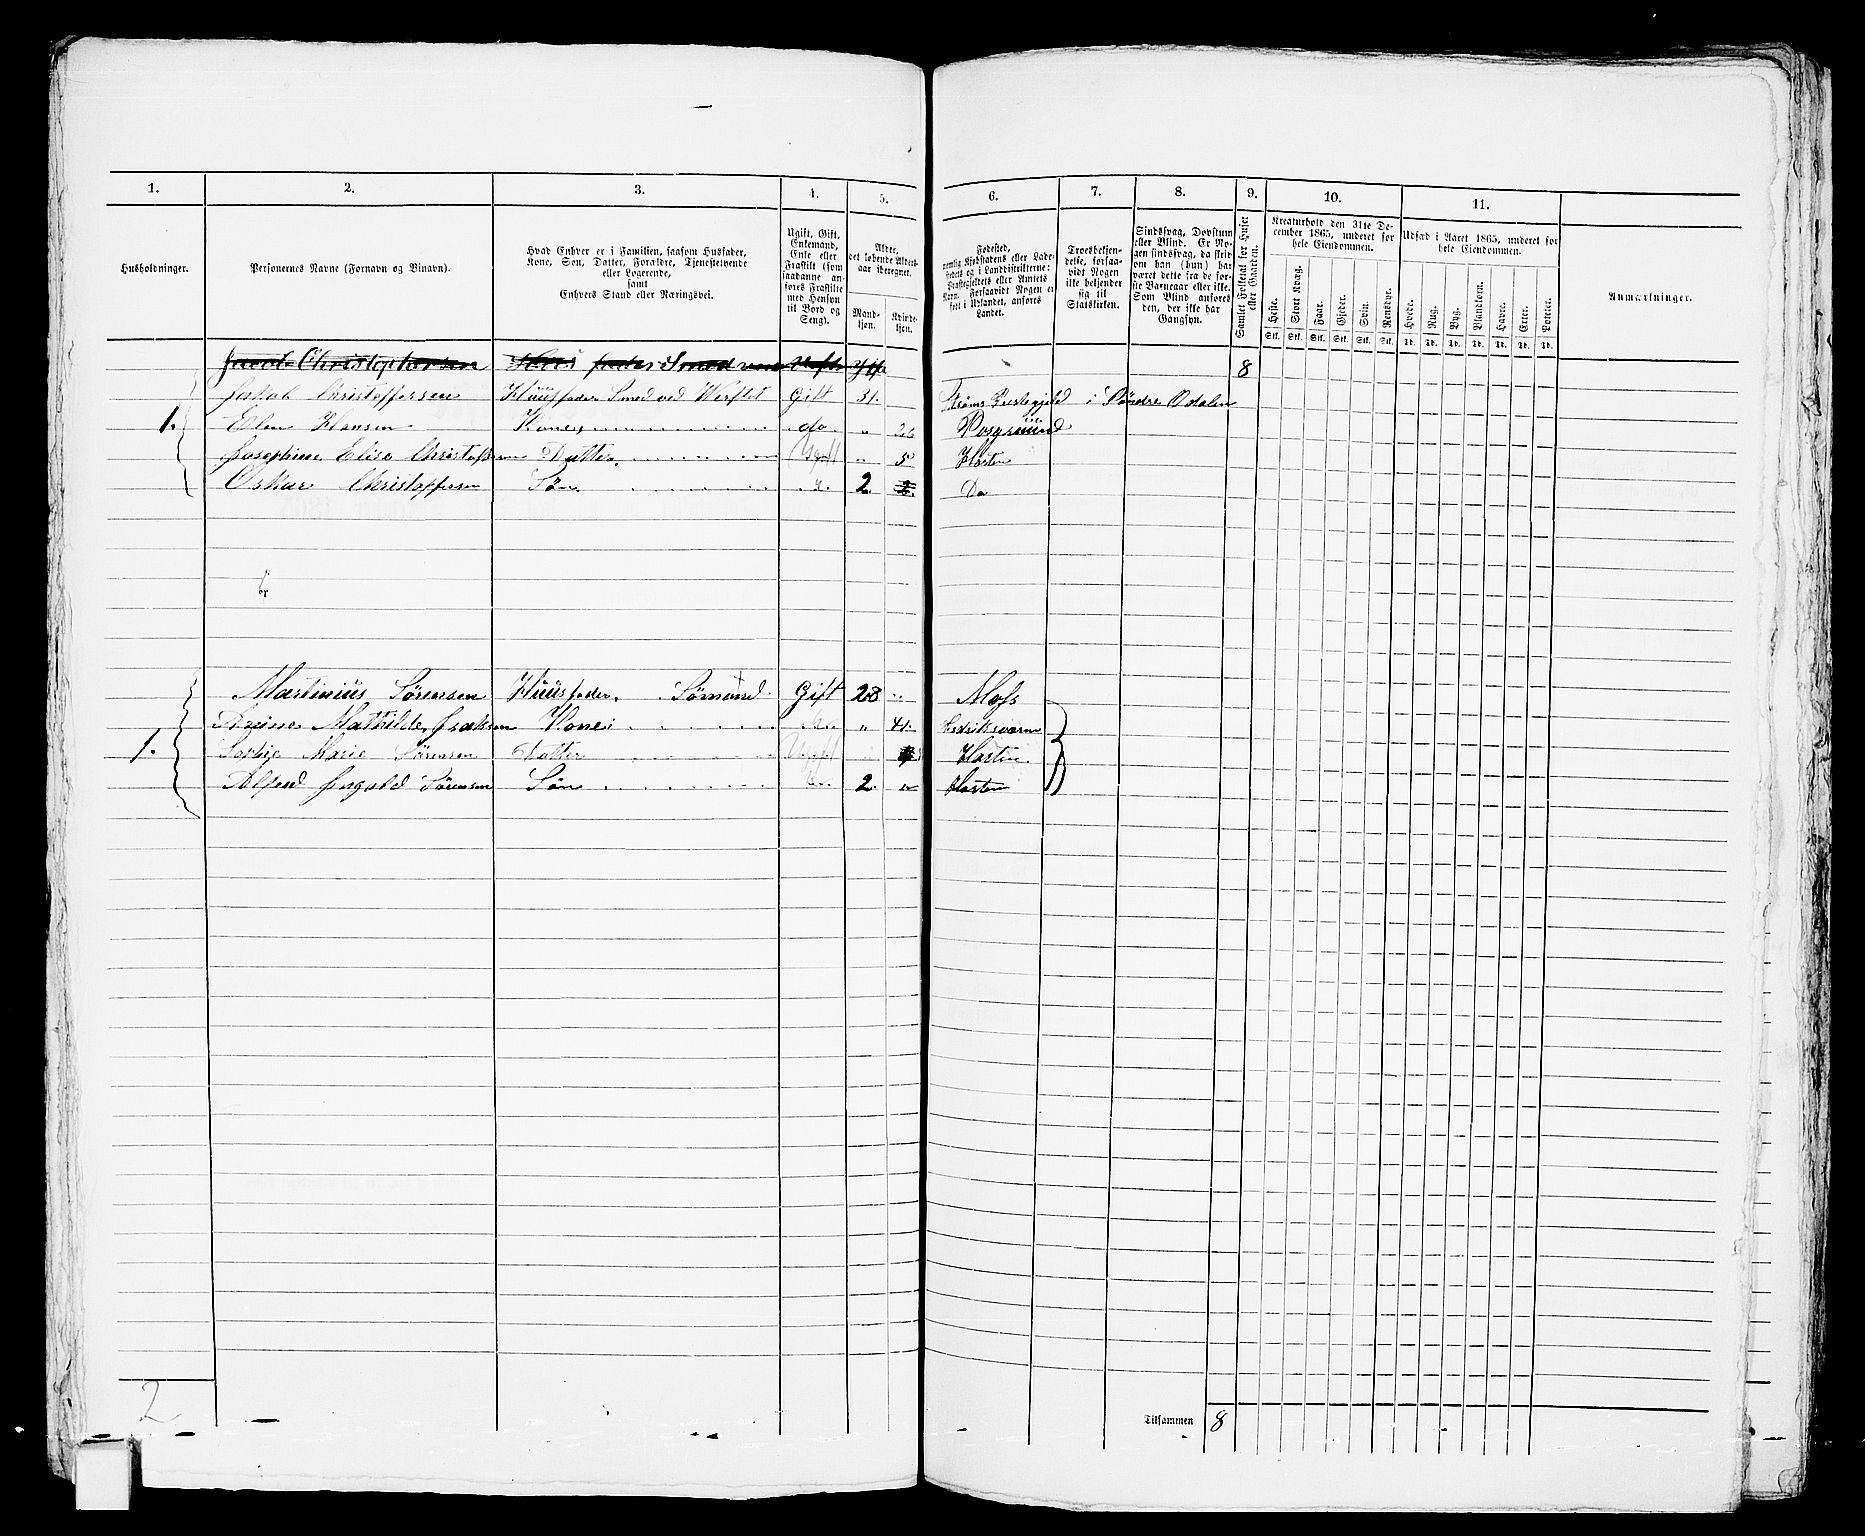 1. 2. 3. 4. 5. 6. 7. 8. 9. 10. 11.
Husholdninger.
Personernes Navne (Fornavn og Binavn).
Hvad Enhver er i Familien, saasom Husfader,
Kone, Søn, Datter, Forældre, Tjenestetyende
eller Logerende,
samt
Enhvers Stand eller Næringsvei.
Ugift, Gift,
Enkemand,
Enke eller
Fraskilt (som
saadanne an-
føres Fraskilte
med Hensyn
til Bord og
Seng).
Alder,
det løbende Alders-
aar iberegnet.
Mand-
kjøn.
Kvinde-
kjøn.
Fødested,
nemlig Kjøbstadens eller Lade-
stedets og i Landdistrikterne:
Præstegjeldets eller Amtets
Navn. Forsaavidt Nogen er
født i Udlandet, anføres
Landet.
Troesbekjen-
delse, forsaa-
vidt Nogen
ikke bekjender
sig til
Statskirken.
Sindssvag, Døvstum
eller Blind. Er No-
gen sindssvag, da skriv
om han (hun) har
været dette fra de for-
ste Barneaar eller ikke.
Som Blind anføres
den, der ikke har
Gangsyn.
Samlet Folketal for Huset
eller Gaarden.
Kreaturhold den 31te De-
cember 1865, underet for
hele Eiendommen.
Heste. Stort Kvæg. Faar. Gjeder. Svin. Rensdyr.
Stk. Stk. Stk. Stk. Stk. Stk.
Udsæd i Aaret 1865, underet for
hele Eiendommen.
Hvede. Rug. Byg. Blandkorn. Havre. Erter. Poteter.
Td. Td. Td. Td. Td. Td. Td.
Anmærkninger.
Jacob Christophersen 8
Jakob Christoffersen Huusfader Smed ved Værftet Gift 31. Strøms Prestegjeld i Søndre Odalen
1. Elen Hansen Kone do " 26 Porsgruund
Josephine Elise Christoffersen Datter. Ugift " 5 Horten
Oskar Christoffersen Søn 2 Do
Martinius Sørensen Huusfader. Sømand Gift 28 " Moss
Mathilde Kone " 41. Fredriksværn
1. Marie Sørensen Datter Ugift Horten
Alfred Ingvald Sørensen Søn 2 " Horten
2
Tilsammen 8